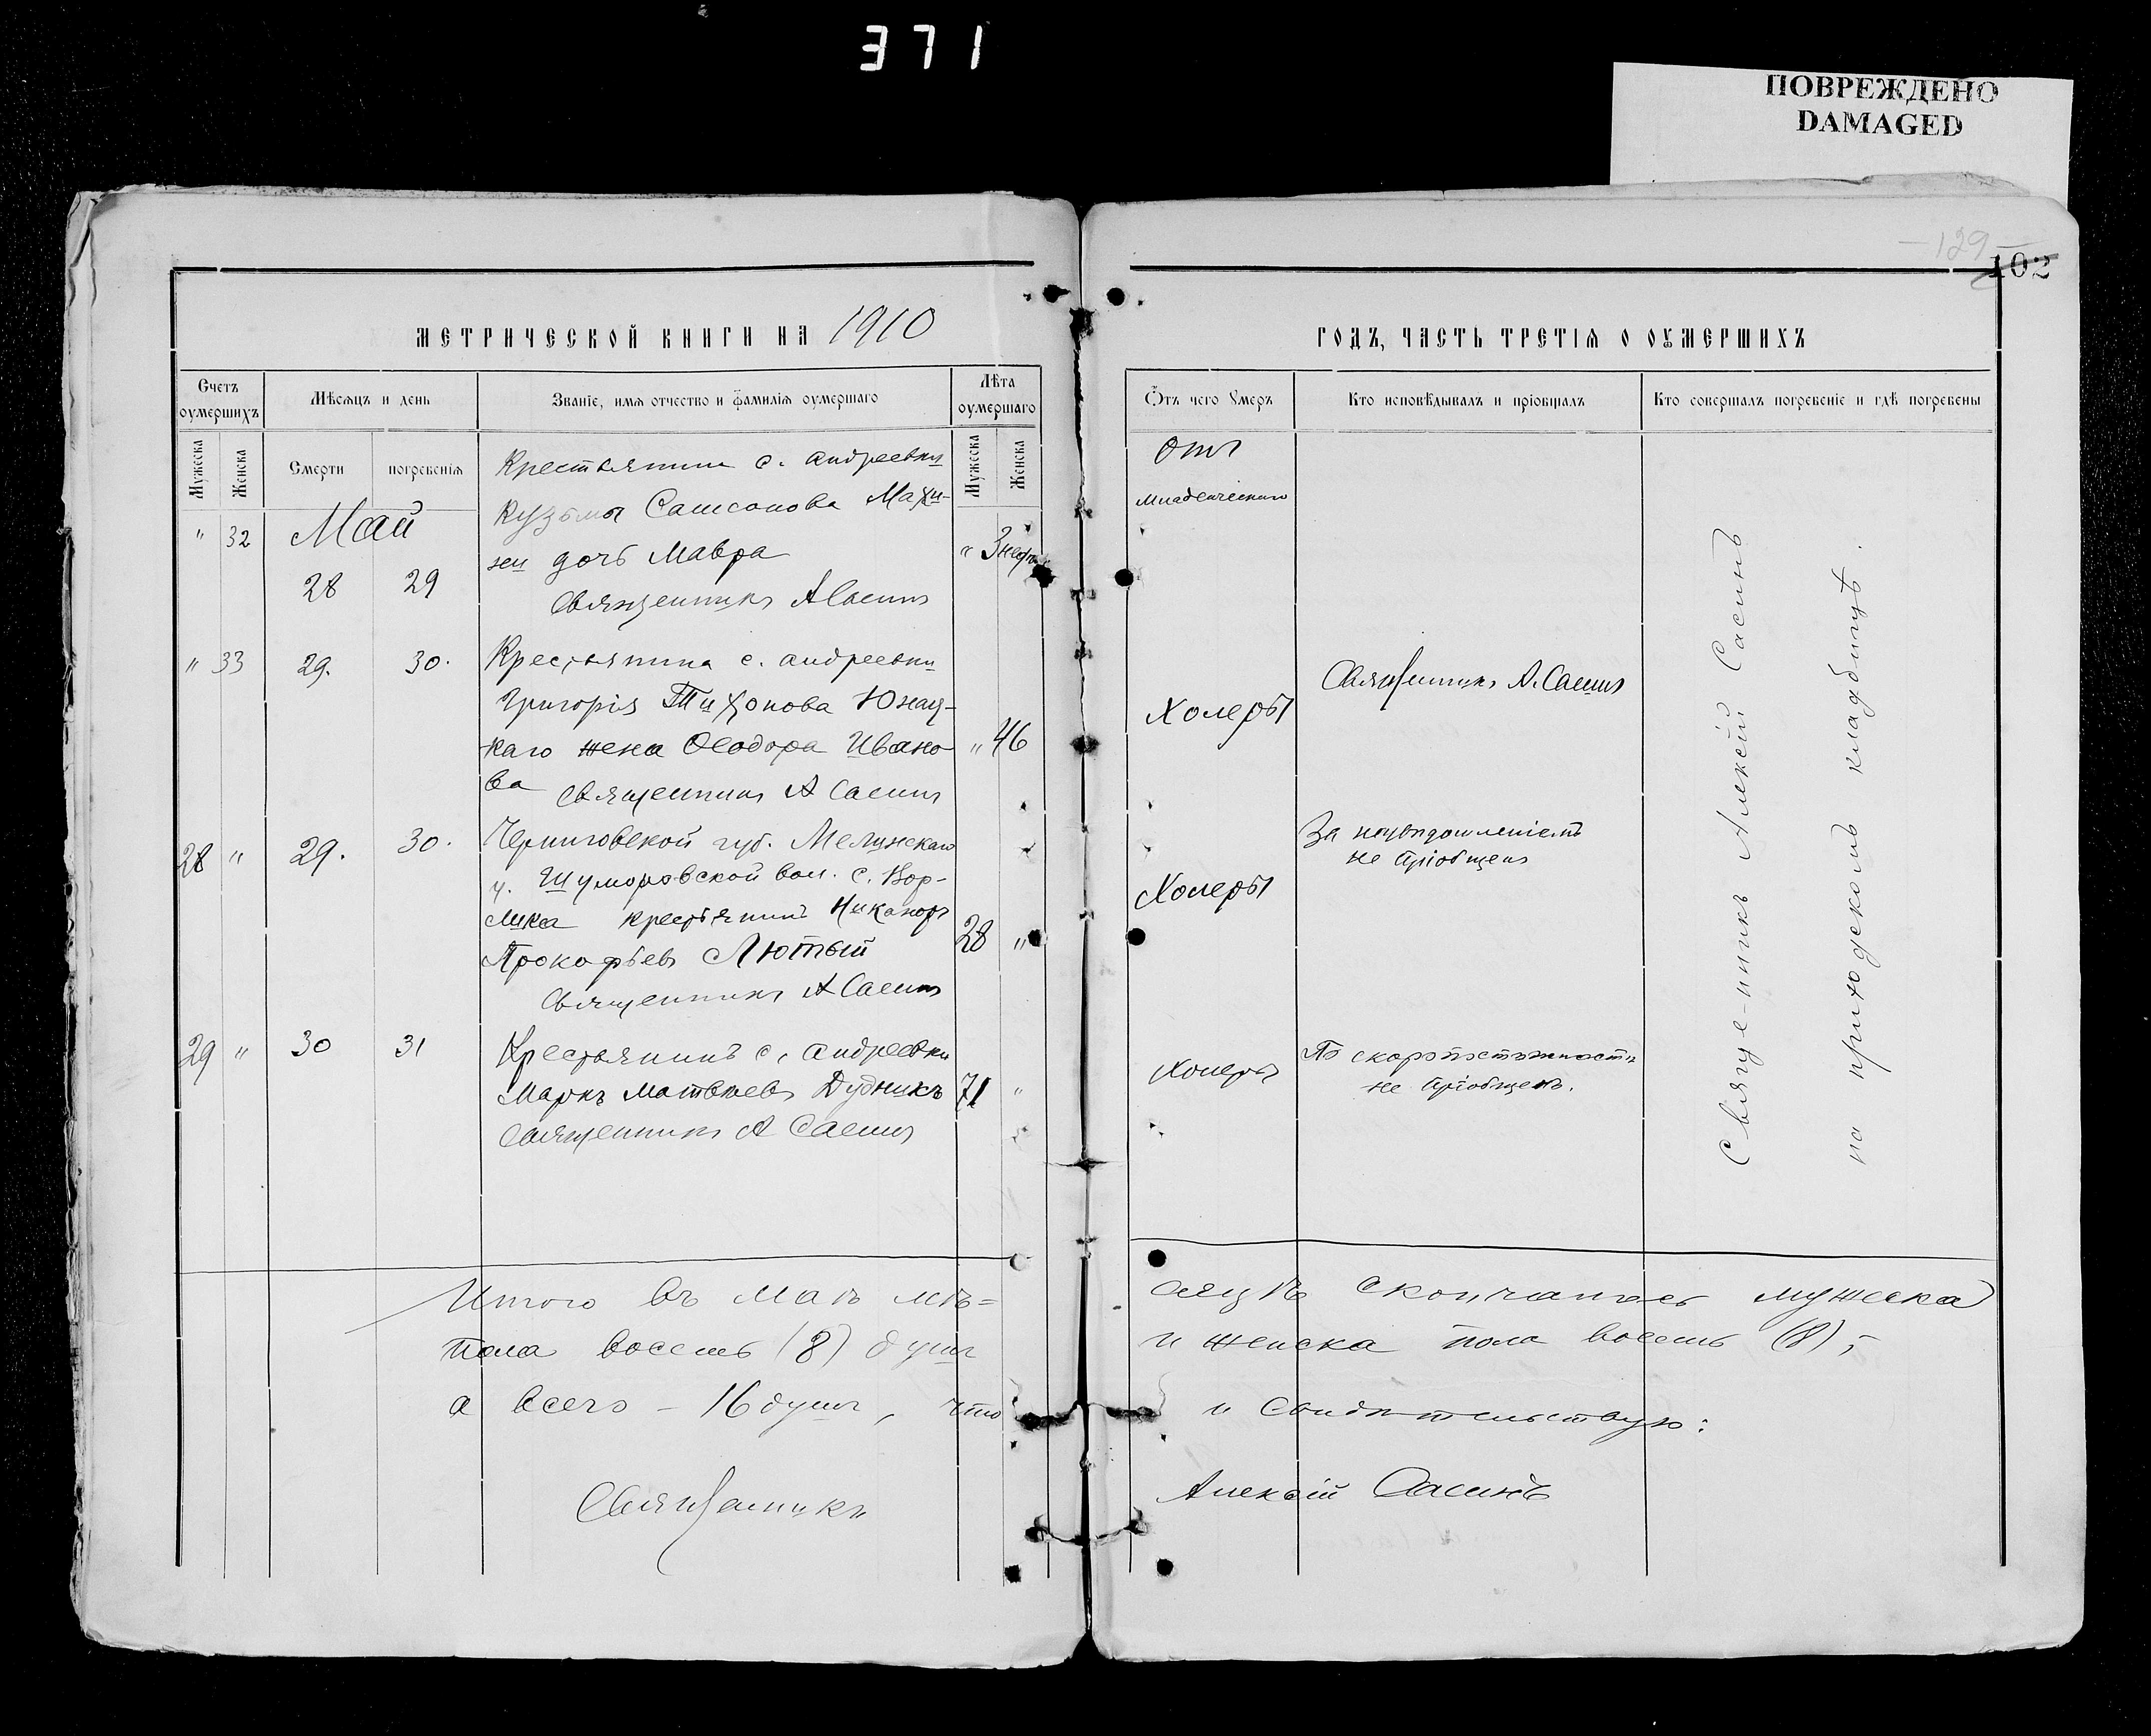 371
ПОВРЕЖДЕНО
DAMAGED
129
102
МЕТРИЧЕСКОЙ КНИГИ НА 1910
Счетъ оумершихъ
Мѣсяцъ и день
Званіе, имя отчество и фамилія оумершаго
Лѣта оумершаго
Мужеска
Женска
Смерти
погребенія
Мужеска
Женска
" 32
Май
28 29
Крестьянина с. Андреевки
Кузьмы Самсонова
дочь Мавра
" 3 нед.
Священникъ А Сасинъ
" 33 29. 30.
Крестьянина с. Андреевки
Григорія Тихонова
жена Ѳеодора Ивано-
ва
" 46
Священникъ А Сасинъ
28 " 29. 30.
Черниговской губ. Мглинскаго
у. Шуморовской вол. с. Вор-
мика крестьянинъ Никаноръ
Прокофьевъ Лютый
28 "
Священникъ А Сасинъ
29 " 30 31
Крестьянинъ с. Андреевки
Маркъ Матвѣевъ Дудникъ
71 "
Священникъ А Сасинъ
Итого въ маѣ мѣ-
пола восемь (8) душъ
а всего - 16 душъ, что
Священникъ
ГОДЪ, ЧАСТЬ ТРЕТІЯ О ОУМЕРШИХЪ
Отъ чего умеръ
Кто исповѣдывалъ и пріобщалъ
Кто совершалъ погребеніе и гдѣ погребены
Отъ
младенческаго
Холеры
Священникъ А. Сасинъ
Холеры
За неувѣдомленіемъ
не пріобщенъ
Холеры
По скоропостижности
не пріобщенъ.
Священникъ Алексій Сасинъ
на приходскомъ кладбищѣ.
сяцѣ скончалось мужеска
и женска пола восемь (8),-
и свидѣтельствую:
Алексій Сасинъ